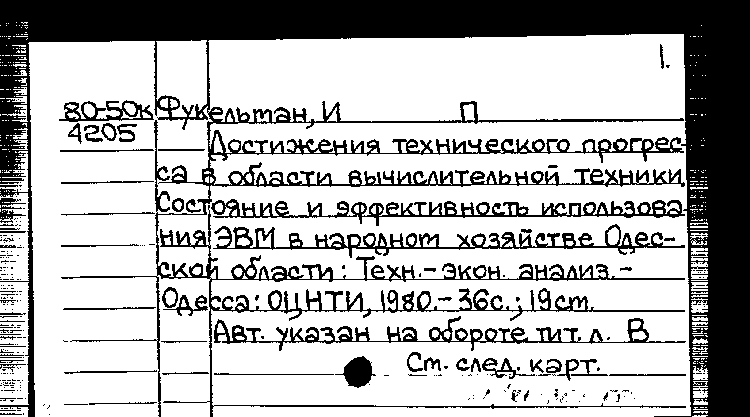 1.
80-50к Фукельман, И П
4205 Достижения технического прогрес-
са в области вычислительной техники.
Состояние и эффективность использова-
ния ЭВМ в народном хозяйстве Одес-
ской области: Техн.-экон. анализ.-
Одесса: ОЦНТИ, 1980.-36с.; 19см.
Авт. указан на обороте тит. л. В
См. след. карт.